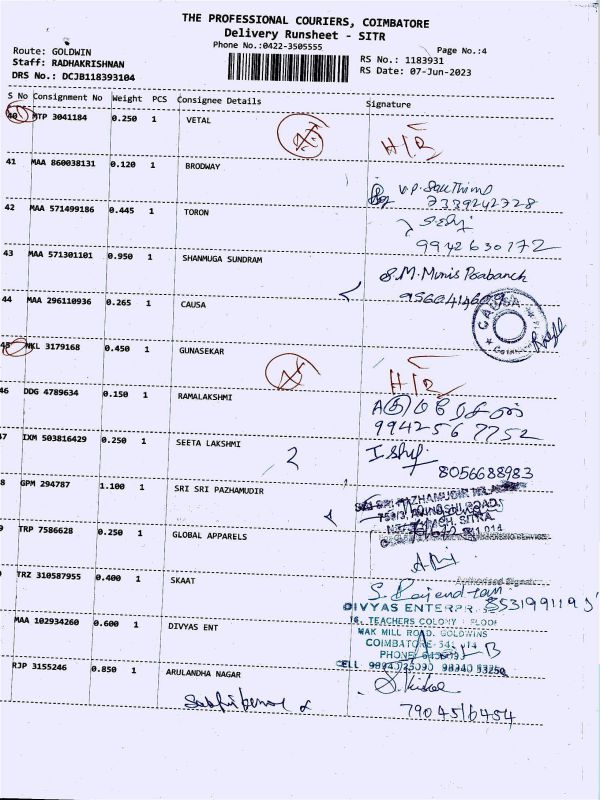 THE PROFESSIONAL COURIERS, COIMBATORE
Delivery Runsheet - SITR
Phone No.:0422-3505555
Page No.:4
Route: GOLDWIN
Staff: RADHAKRISHNAN
DRS No.: DCJB118393104
RS No.: 1183931
RS Date: 07-Jun-2023
S No Consignment No Weight PCS Consignee Details Signature
40 MTP 3041184 0.250 1 VETAL
H/R
41 MAA 860038131 0.120 1 BRODWAY
7339242728
42 MAA 571499186 0.445 1 TORON
9942630172
43 MAA 571301101 0.950 1 SHANMUGA SUNDRAM
S.M.Munis
44 MAA 296110936 0.265 1 CAUSA
CAUSA
45 NKL 3179168 0.450 1 GUNASEKAR
H/R
46 DDG 4789634 0.150 1 RAMALAKSHMI
9942567752
47 IXM 503816429 0.250 1 SEETA LAKSHMI
8056688983
8 GPM 294787 1.100 1 SRI SRI PAZHAMUDIR
SRI SRI PAZHAMUDIR
9 TRP 7586628 0.250 1 GLOBAL APPARELS
TRZ 310587955 0.400 1 SKAAT
MAA 102934260 0.600 1 DIVYAS ENT
DIVYAS ENTERPR
16, TEACHERS COLONY
WAK MILL ROAD, GOLDWINS
COIMBATORE
PHONE
CELL
RJP 3155246 0.850 1 ARULANDHA NAGAR
7904516454